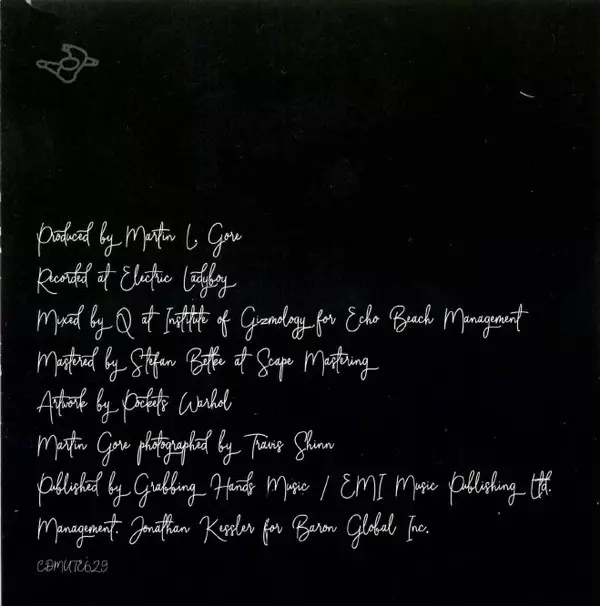 Produced by Martin L. Gore
Recorded at Electric Ladyboy
Mixed by Q at Institute of Gizmology for Echo Beach Management
Mastered by Stefan Betke at Scape Mastering
Artwork by Pockets Warhol
Martin Gore photographed by Travis Shinn
Published by Grabbing Hands Music / EMI Music Publishing Ltd.
Management: Jonathan Kessler for Baron Global Inc.
CDMUTE629